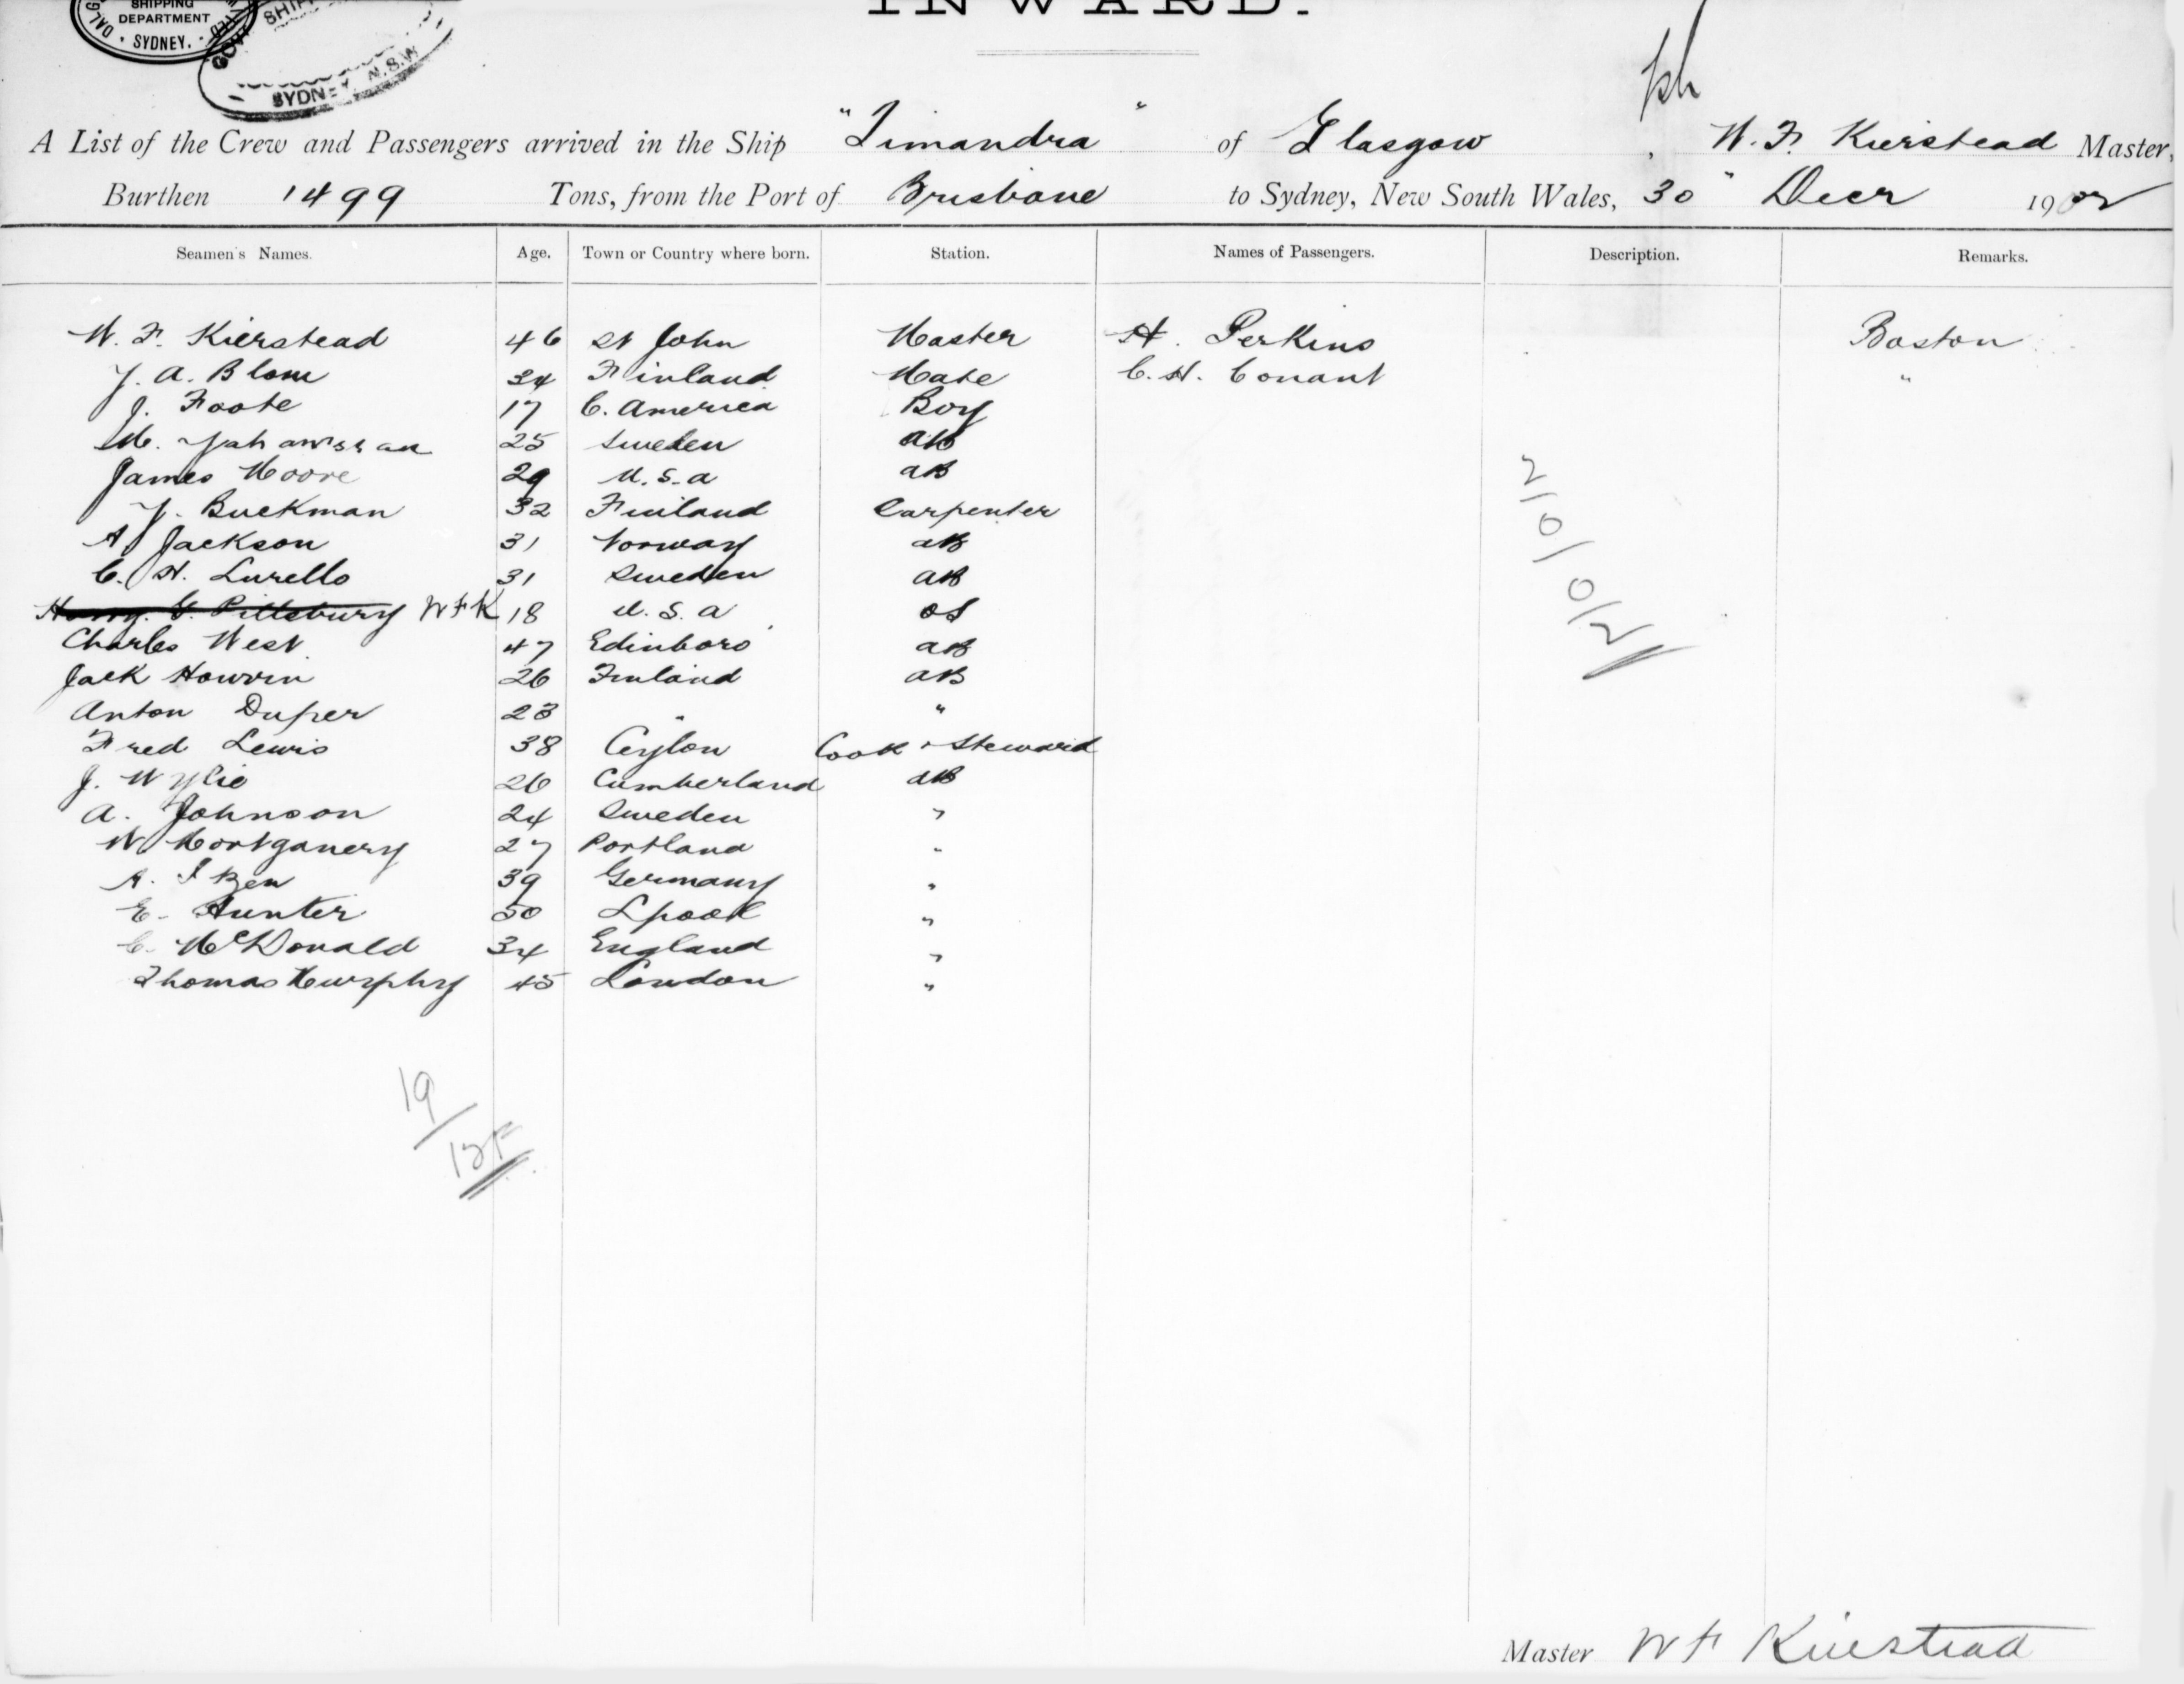 SHIPPING
DEPARTMENT
SYDNEY.
SYDNEY N.S.W
INWARD.
A List of the Crew and Passengers arrived in the Ship "Timandra" of Glasgow, W. F. Kierstead Master,
Burthen 1499 Tons, from the Port of Brisbane to Sydney, New South Wales, 30" Decr 1902
Seamen's Names. Age. Town or Country where born. Station. Names of Passengers. Description. Remarks.
W. F. Kierstead 46 St John Master H. Perkins Boston
J. A. Blom 34 Finland Mate C. H. Conant "
J. Foote 17 C. America Boy
M. 25 Sweden AB
James Moore 29 U.S.A AB
J. Buckman 32 Finland Carpenter
A Jackson 31 Norway AB
C. H. Lurello 31 Sweden AB
Harry G. Pillsbury WFK 18 U.S.A OS
Charles West 47 Edinboro' AB
Jack Howrin 26 Finland AB
Anton Duper 23 " "
Fred Lewis 38 Ceylon Cook & Steward
J. Wylie 26 Cumberland AB
A. Johnson 24 Sweden "
W Montganery 27 Portland "
A. Iken 39 Germany "
E. Hunter 50 Lpool "
C. McDonald 34 England "
Thomas Murphy 45 London "
2/0/0/2
19
Master W F Kierstead